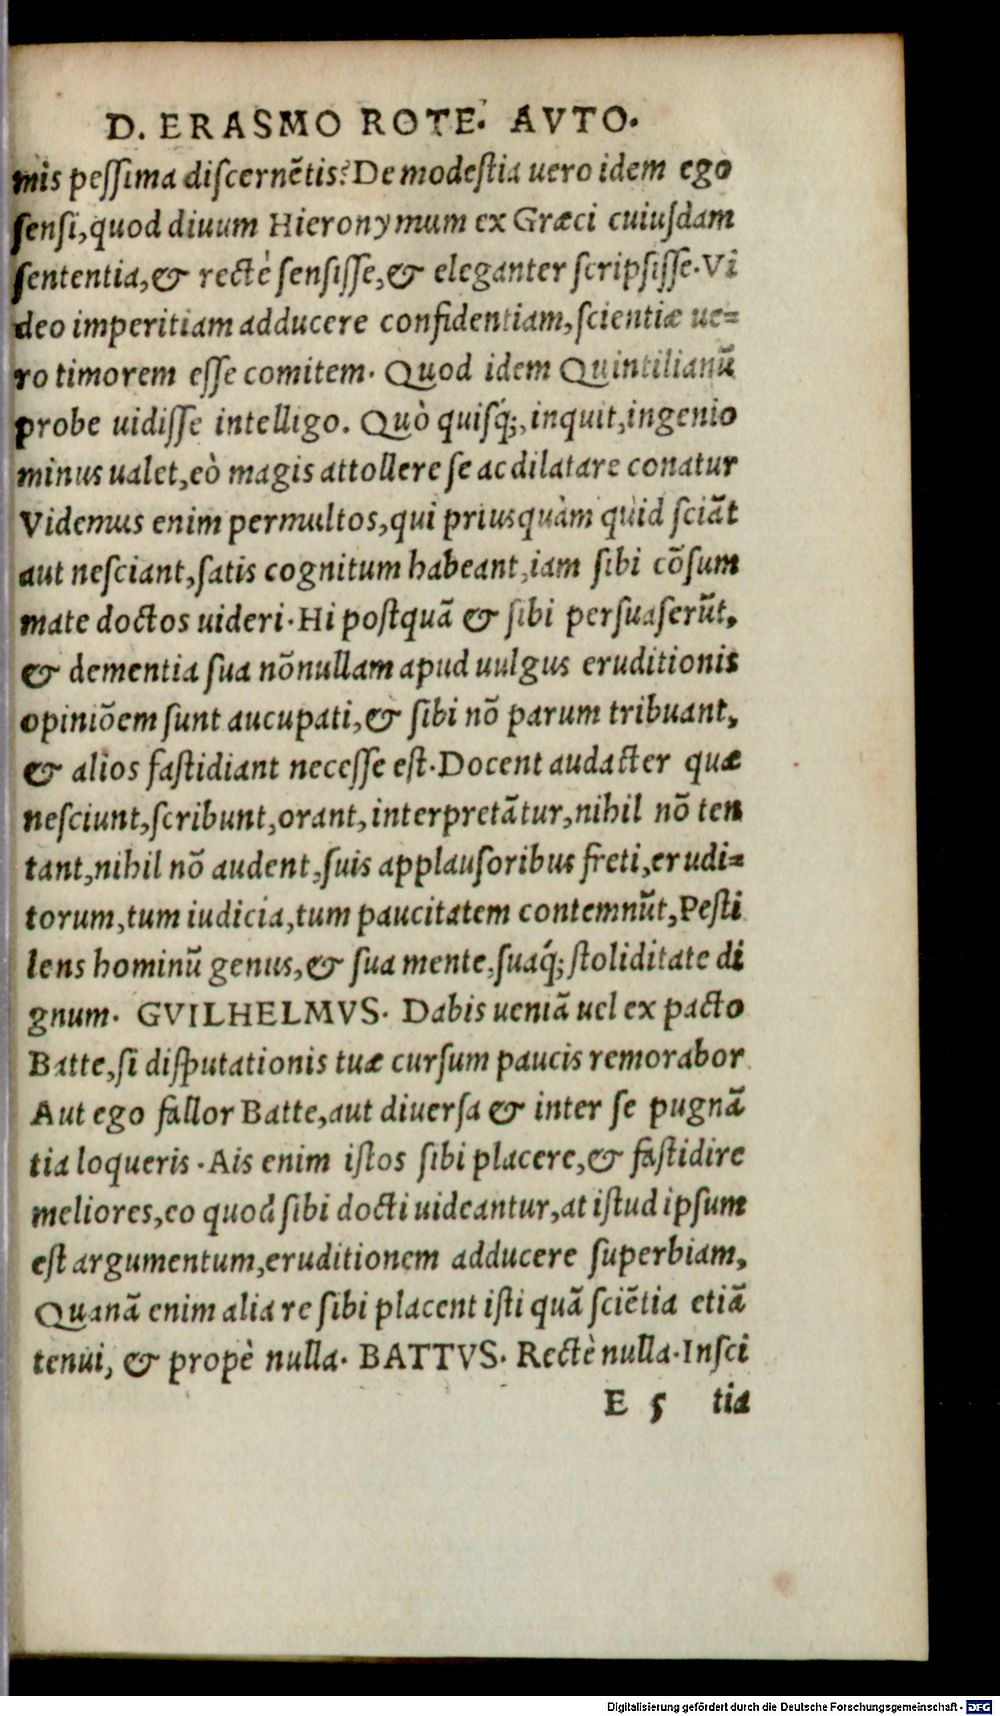 D. ERASMO ROTE. AVTO.
mis peſſima diſcernẽtis? De modeſtia uero idem ego
ſenſi, quod diuum Hieronymum ex Græci cuiuſdam
ſententia, & rectè ſenſiſſe, & eleganter ſcripſiſſe. Vi
deo imperitiam adducere confidentiam, ſcientiæ ue=
ro timorem eſſe comitem. Quod idem Quintilianũ
probe uidiſſe intelligo. Quò quiſq́;, inquit, ingenio
minus ualet, eò magis attollere ſe ac dilatare conatur
Videmus enim permultos, qui priusquàm quid ſciãt
aut neſciant, ſatis cognitum habeant, iam ſibi cõſum
mate doctos uideri. Hi poſtquã & ſibi perſuaſerũt,
& dementia ſua nõnullam apud uulgus eruditionis
opiniõem ſunt aucupati, & ſibi nõ parum tribuant,
& alios faſtidiant neceſſe eſt. Docent audacter quæ
neſciunt, ſcribunt, orant, interpretãtur, nihil nõ ten
tant, nihil nõ audent, ſuis applauſoribus freti, erudi=
torum, tum iudicia, tum paucitatem contemnũt, Peſti
lens hominũ genus, & ſua mente, ſuaq́; ſtoliditate di
gnum. GVILHELMVS. Dabis ueniã uel ex pacto
Batte, ſi diſputationis tuæ curſum paucis remorabor
Aut ego fallor Batte, aut diuerſa & inter ſe pugnã
tia loqueris. Ais enim iſtos ſibi placere, & faſtidire
meliores, eo quod ſibi docti uideantur, at iſtud ipſum
eſt argumentum, eruditionem adducere ſuperbiam,
Quanã enim alia re ſibi placent iſti quã ſciẽtia etiã
tenui, & propè nulla. BATTVS. Rectè nulla. Inſci
E 5 tia
Digitalisierung gefördert durch die Deutsche Forschungsgemeinschaft - DFG